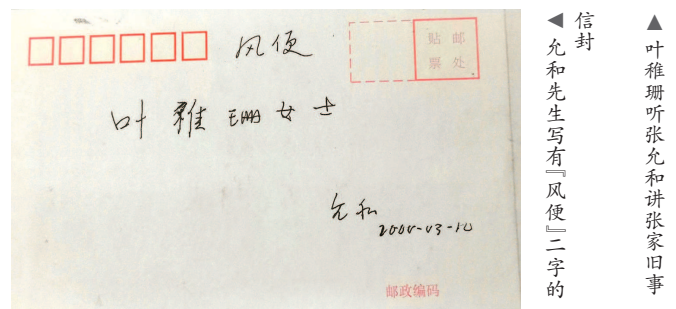 风便
贴邮
票处
叶稚珊女士
允和
邮政编码
▲叶稚珊听张允和讲张家旧事
◀允和先生写有『风便』二字的
信封